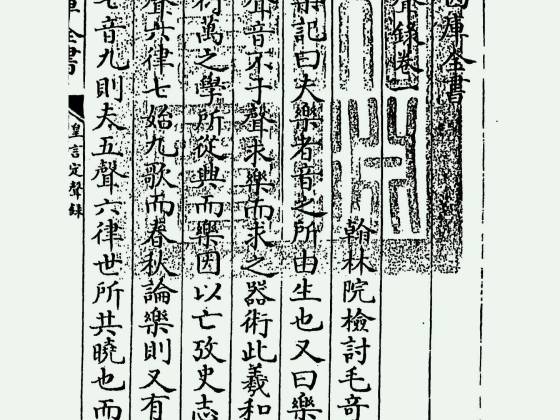 庫全書
聲錄卷一
翰林院檢討毛奇
記曰夫樂者音之所由生也又曰樂
聲音不于聲求樂而求之器術此羲和
萬之學所從興而樂因以亡攷史志
聲六律七始九歌而春秋論樂則又有
七音九則夫五聲六律世所共曉也而
全書
皇言定聲錄